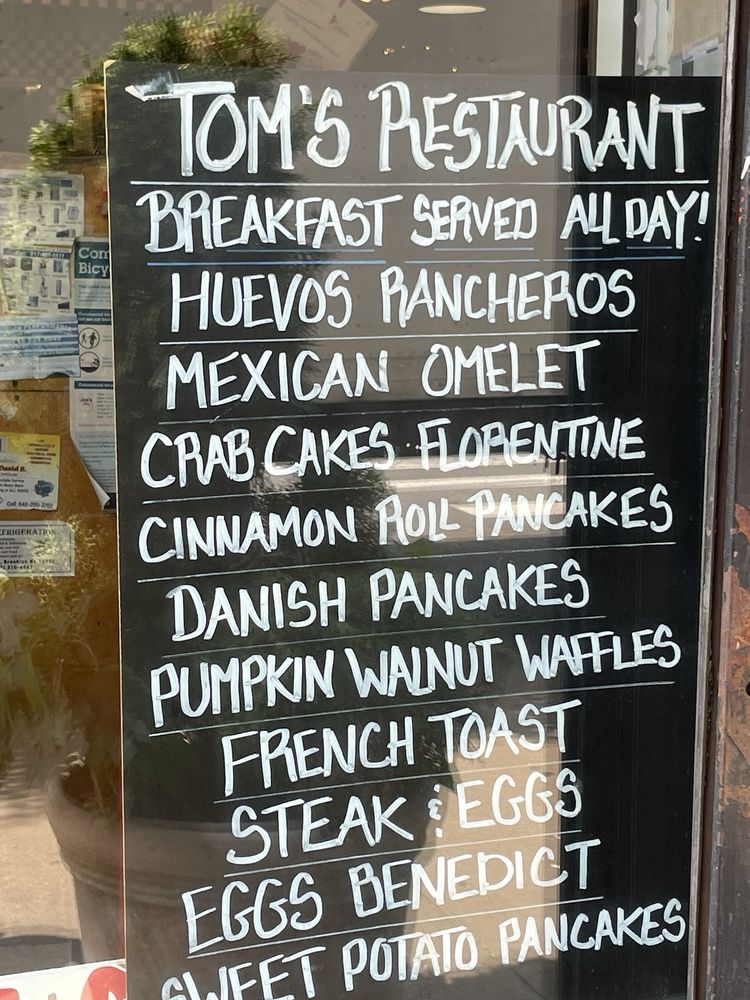 TOM'S RESTAURANT
BREAKFAST SERVED ALL DAY!
HUEVOS RANCHEROS
MEXICAN OMELET
CRAB CAKES FLORENTINE
CINNAMON ROLL PANCAKES
DANISH PANCAKES
PUMPKIN WALNUT WAFFLES
FRENCH TOAST
STEAK & EGGS
EGGS BENEDICT
SWEET POTATO PANCAKES
Com
Bicy
Daniel B.